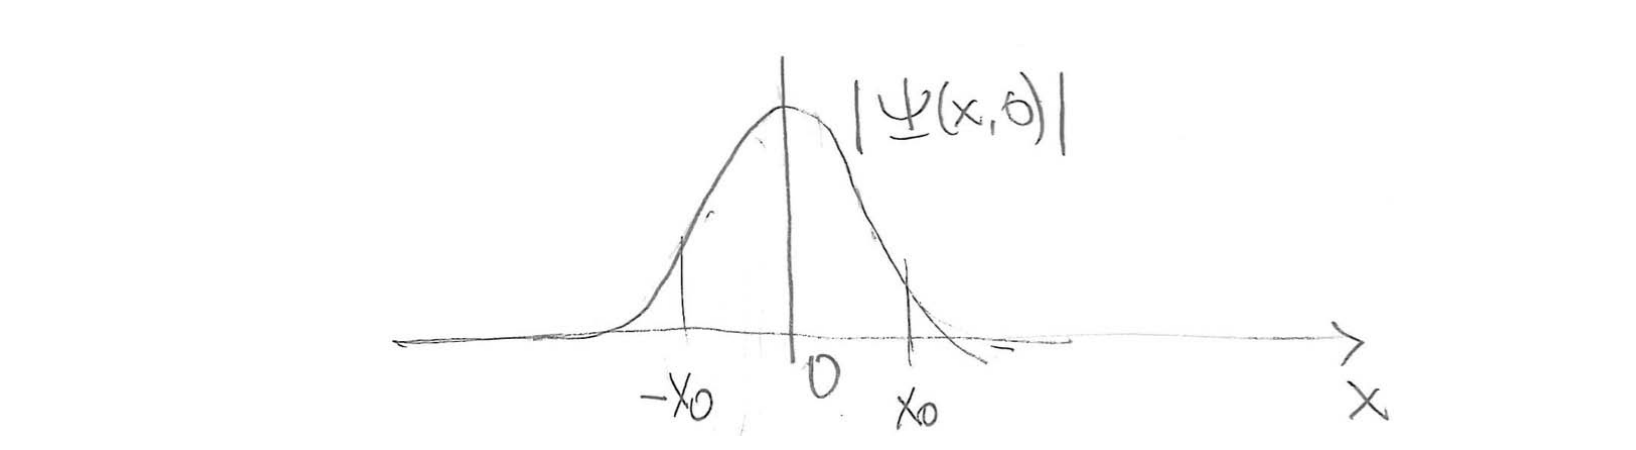 |Ψ(x,0)|
-x₀
0
x₀
x